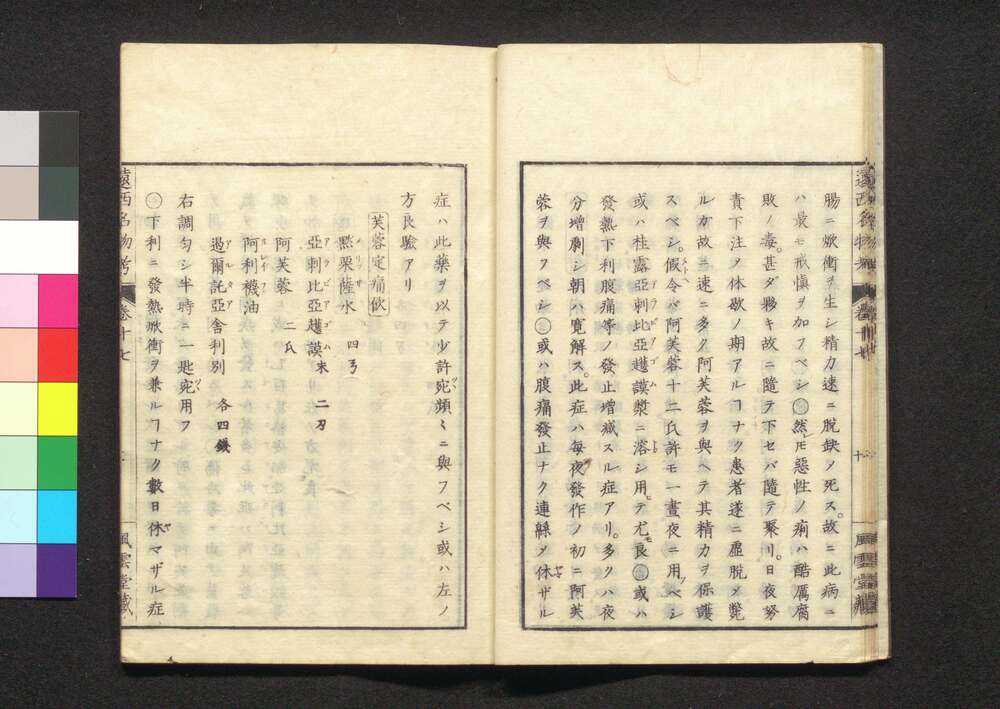 腸ニ焮衝ヲ生シ精力速ニ脱缺ノ死ス。故ニ此病ニ
ハ最モ戒愼ヲ加フベシ◯然𪜈惡性ノ痢ハ酷厲腐
敗ノ毒。甚ダ夥キ故ニ隨テ下セバ隨テ聚リ。日夜努
責下注ノ休歇ノ期アルヿナク患者遂ニ虛脱ノ斃
ルガ故ニ速ニ多ク阿芙蓉ヲ與ヘテ其精力ヲ保護
スベシ。假令バ阿芙蓉十二氐許モ一晝夜ニ用ベシ
或ハ桂露亞剌比亞護謨漿ニ溶シ用テ尤モ良◯或ハ
發熱下利腹痛等ノ發止增減スル症アリ。多クハ夜
分增劇シ朝ハ寛解ス。此症ハ每夜發作ノ初ニ阿芙
蓉ヲ與フベシ◯或ハ腹痛發止ナク連緜ノ休ザル
遠西名物考
卷十七
風雲堂藏
症ハ此藥ヲ以テ少許宛頻々ニ與フベシ或ハ左ノ
方良驗アリ
芙蓉定痛飲
黙栗薩水 四弓
亞剌比亞護謨末 二刃
阿芙蓉 二氐
阿利襪油
遏爾託亞舎利別 各四錢
右調勻シ半時ニ一匙宛用フ
◯下利ニ發熱焮衝ヲ兼ルヿナク數日休マザル症